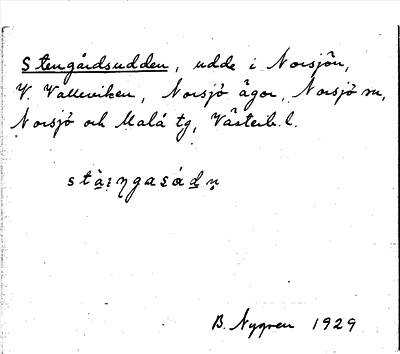 Stengårdsudden, udde i Norsjön,
V. Valleviken, Norsjö ägor, Norsjö sn,
Norsjö och Malå tg, Västerb. l.
B. Nygren 1929